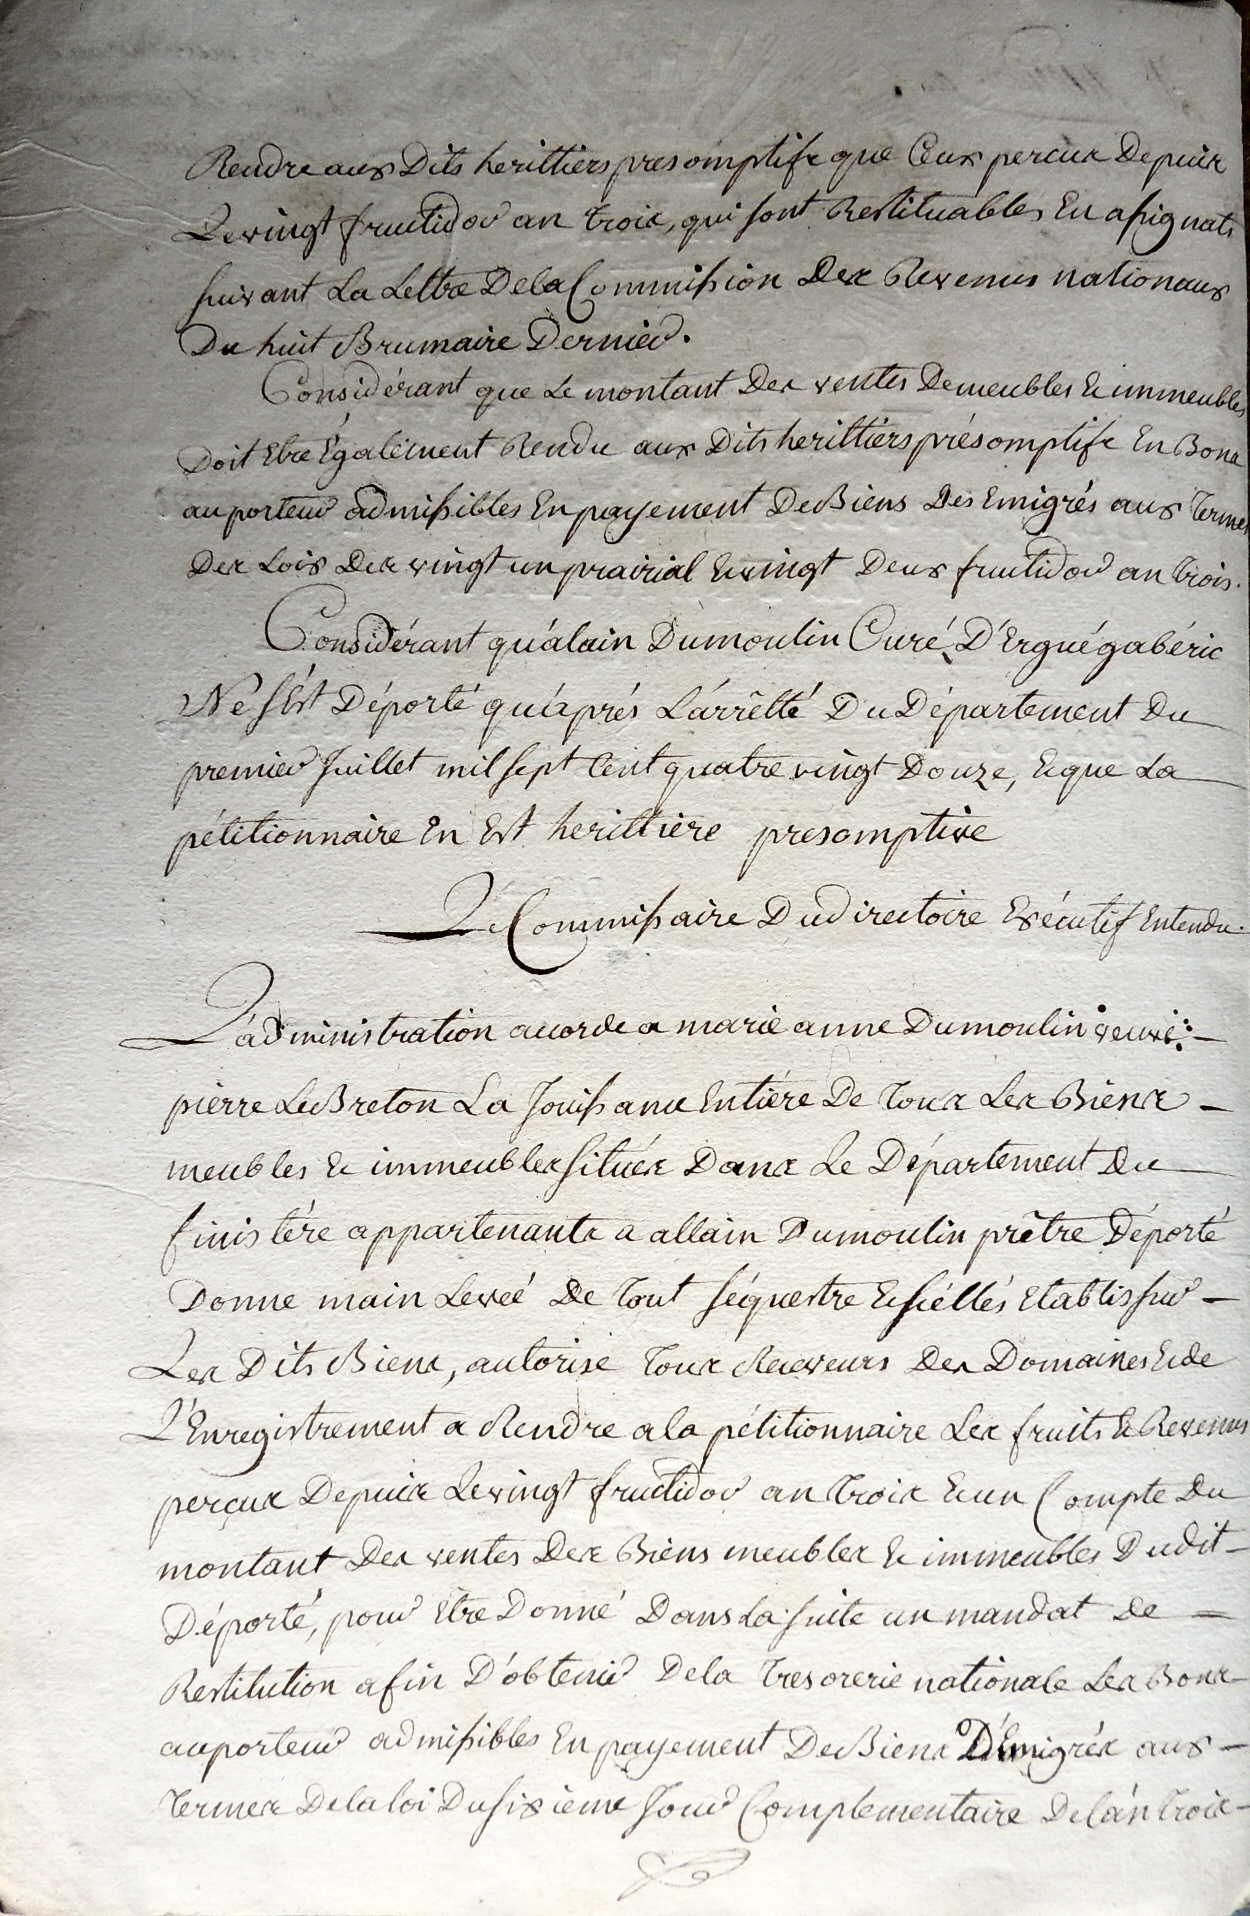 Rendre aux Dits herittiers presomptifs que Ceux percus Depuis
Le vingt fructidor an trois, qui sont Restituables En assignats
suivant La Lettre De la Commission Des Revenus nationaux
Du huit Brumaire Dernier.
Considérant que Le montant Des ventes De meubles & immeubles
Doit Etre Également Rendu aux Dits herittiers présomptifs En Bons
au porteur admissibles En payement De Biens Des Emigrés aux Termes
Des Lois Des vingt un prairial & vingt Deux fructidor an trois.
Considérant qu'alain Dumoulin Curé D'Ergué gabéric
Ne s'Est Déporté qu'aprés L'arrêtté Du Département Du
premier Juillet mil sept Cent quatre vingt Douze, & que La
pétitionnaire En Est herittière presomptive
Le Commissaire Du directoire Exécutif Entendu.
L'administration accorde a marie anne Dumoulin veuve
pierre Le Breton La Jouissance Entiére De Tous Les Biens
meubles & immeubles situés Dans Le Département Du
finistére appartenants a allain Dumoulin prêtre Déporté
Donne main Levée De tout séquestre & scéllés Etablis sur
Les Dits Biens, autorise Tous Receveurs Des Domaines & de
L'Enregistrement a Rendre a la pétitionnaire Les fruits & Revenus
perçus Depuis Le vingt fructidor an trois & un Compte Du
montant Des ventes Des Biens meubles & immeubles Dudit
Déporté, pour Etre Donné Dans La suite un mandat de
Restitution afin D'obtenir De la Tresorerie nationale Les Bons
au porteur admissibles En payement De Biens D'Emigrés aux
Termes De la loi Du sixieme Jour Complementaire De l'an trois